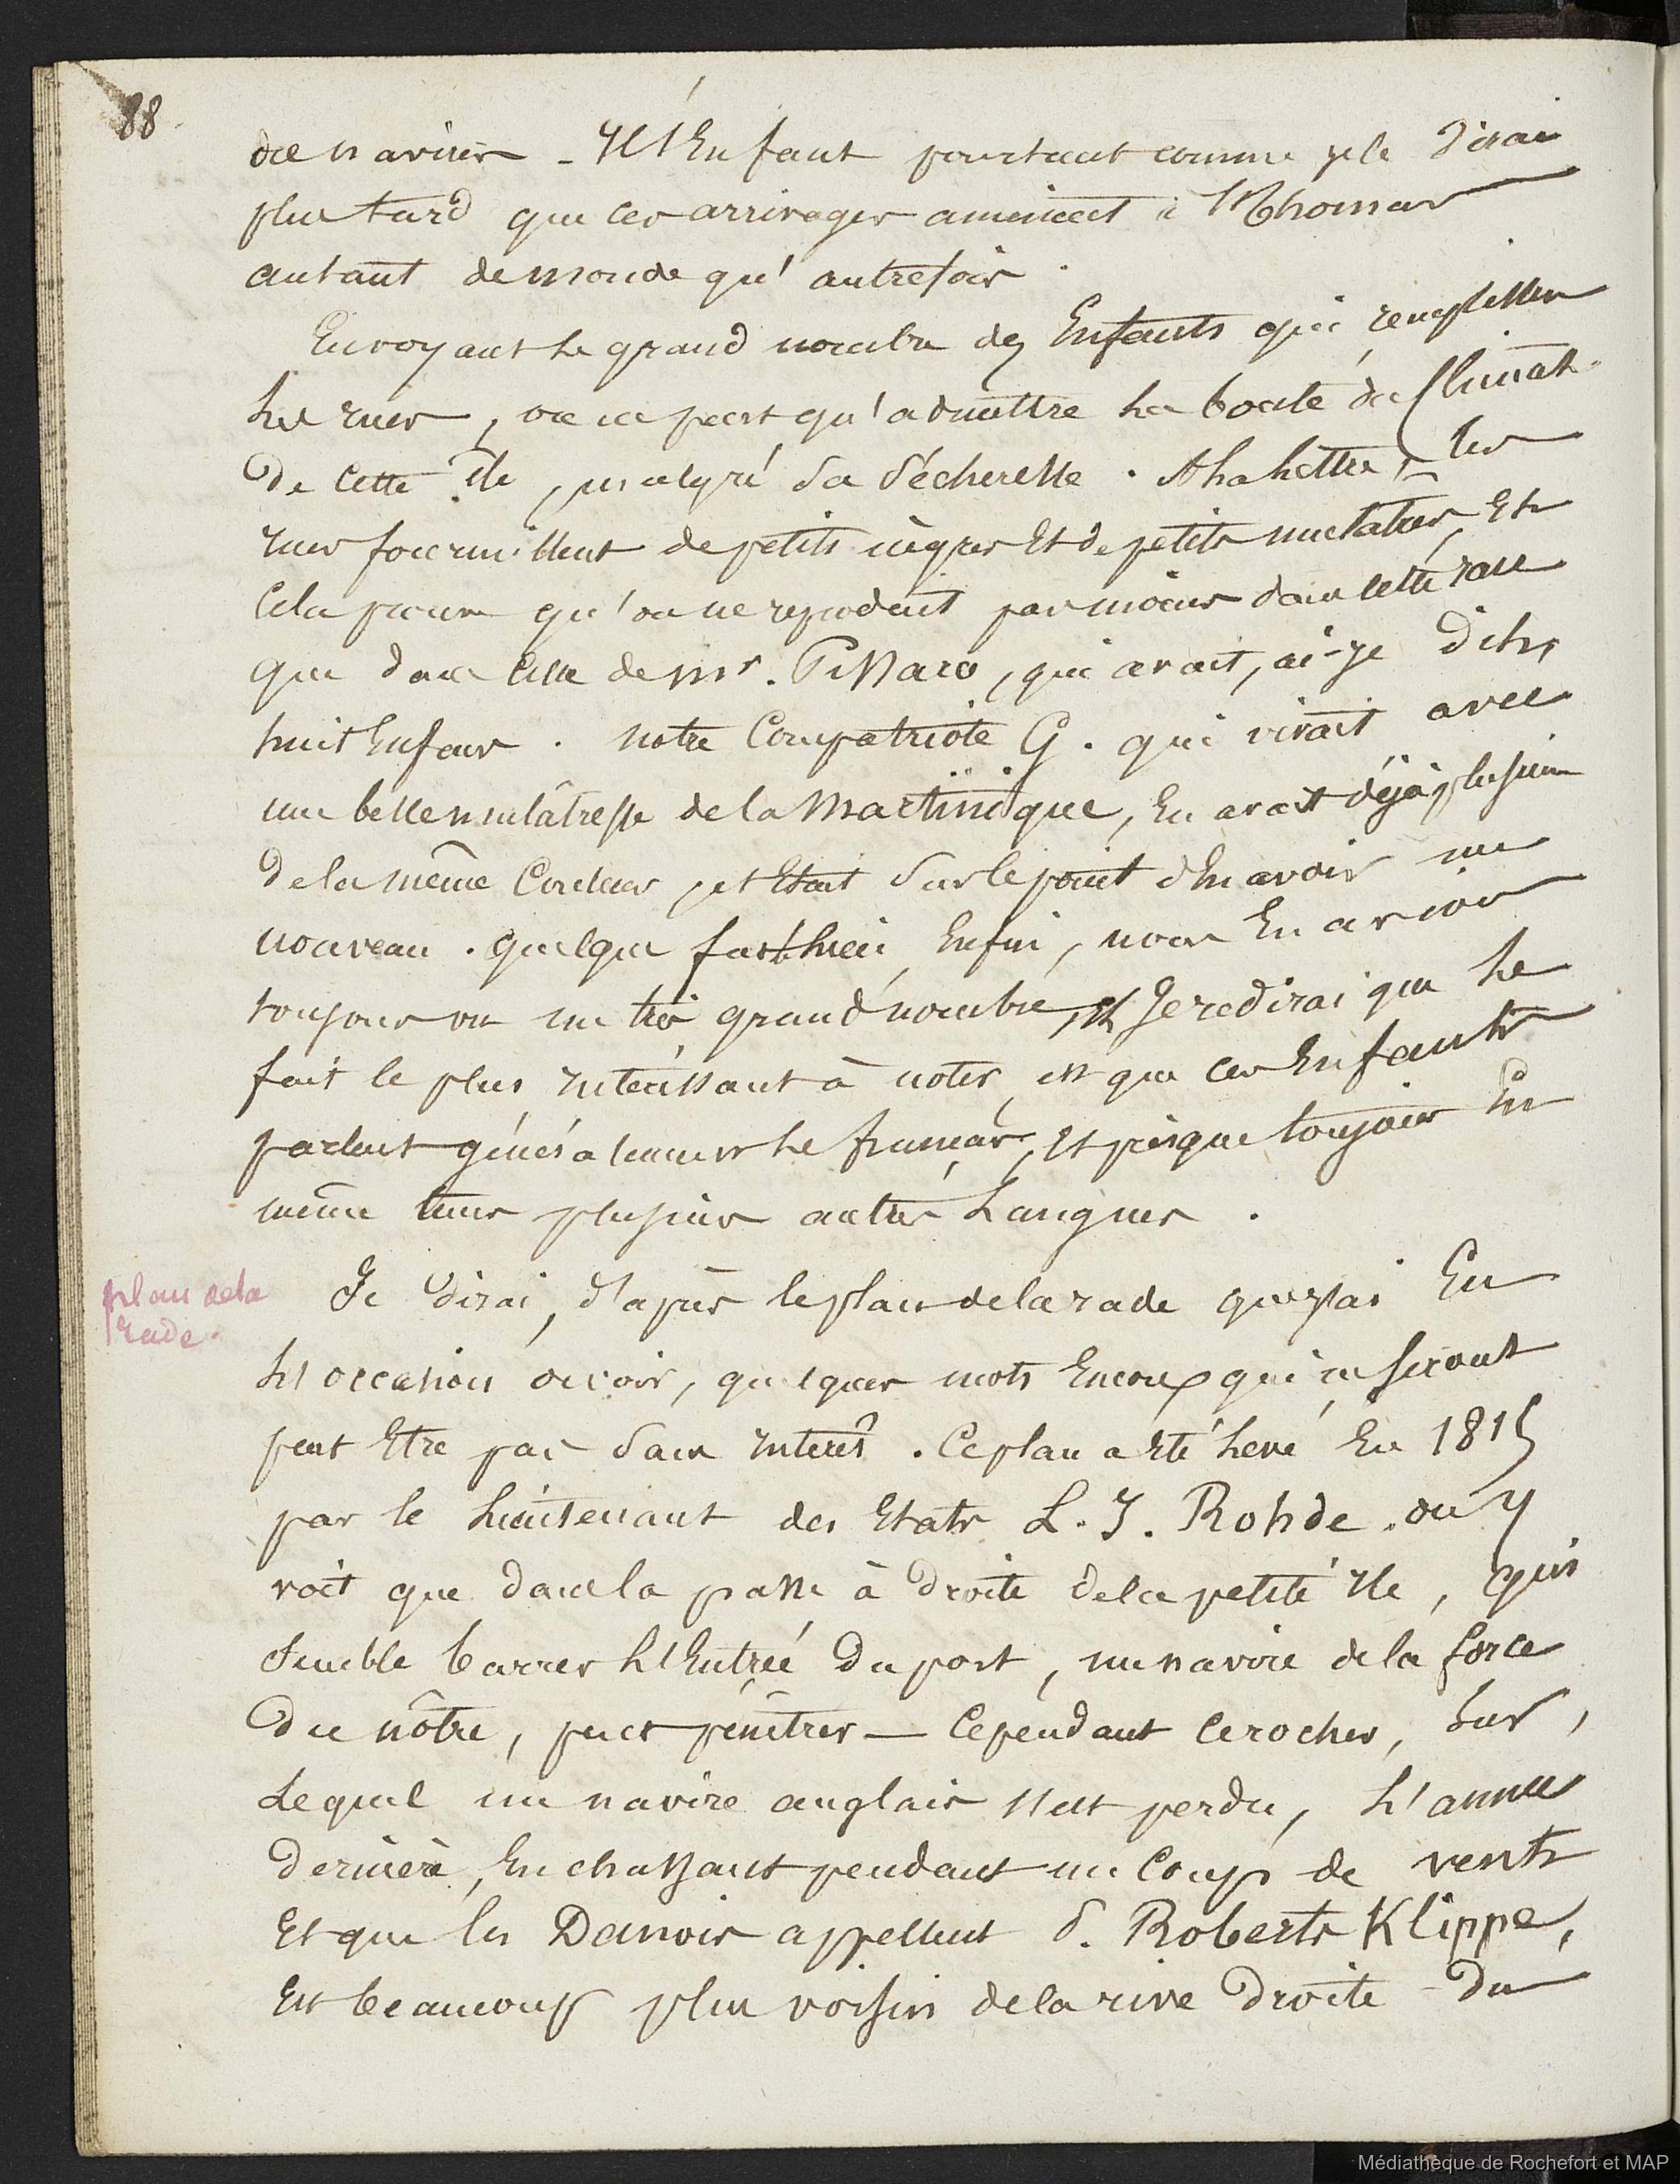 88
des navires - Il s'en faut pourtant comme je le dirai
plus tard que ces arrivages amènent à St Thomas
autant de monde qu'autrefois.
En voyant le grand nombre des Enfants qui remplissen
les rues, on ne peut qu'admettre la bonté du Climat
de cette île, malgré sa sécheresse. A la lettre, les
rues fourmillent de petits nègres et de petits mulatres, Et
Cela prouve qu'on ne reproduit pas moins dans cette race
que dans celle de mr. Pissaro, qui avait, ai-je dit,
huit Enfans. notre Compatriote G. qui vivait avec
une belle mulâtresse de la Martinique, En avait déjà plusieurs
de la même Couleur, et Etait sur le point d'En avoir un
nouveau. quelque part Enfin, nous En avions
toujours vu un très grand nombre, Et Je redirai que le
fait le plus intéressant à noter, est que ces Enfants
parlent généralement le français, Et presque toujours En
même tems plusieurs autres Langues.
plan de la
rade.
Je dirai, d'après le plan de la rade que j'ai Eu
l'occasion de voir, quelques mots Encore, qui ne seront
peut Etre pas sans intérêt. Ce plan a Eté levé En 1815
par le Lieutenant des Etats L. J. Rohde. on y
voit que dans la passe à droite de la petite Ile, qui
semble barrer l'Entrée du port, un navire de la force
du nôtre, peut pénétrer — Cependant le rocher, sur,
Lequel un navire anglais s'est perdu, l'année
dernière, En chassant pendant un Coup de vent
Et que les Danois appellent S. Roberts Klippe,
Est beaucoup plus voisin de la rive droite du
Médiathèque de Rochefort et MAP